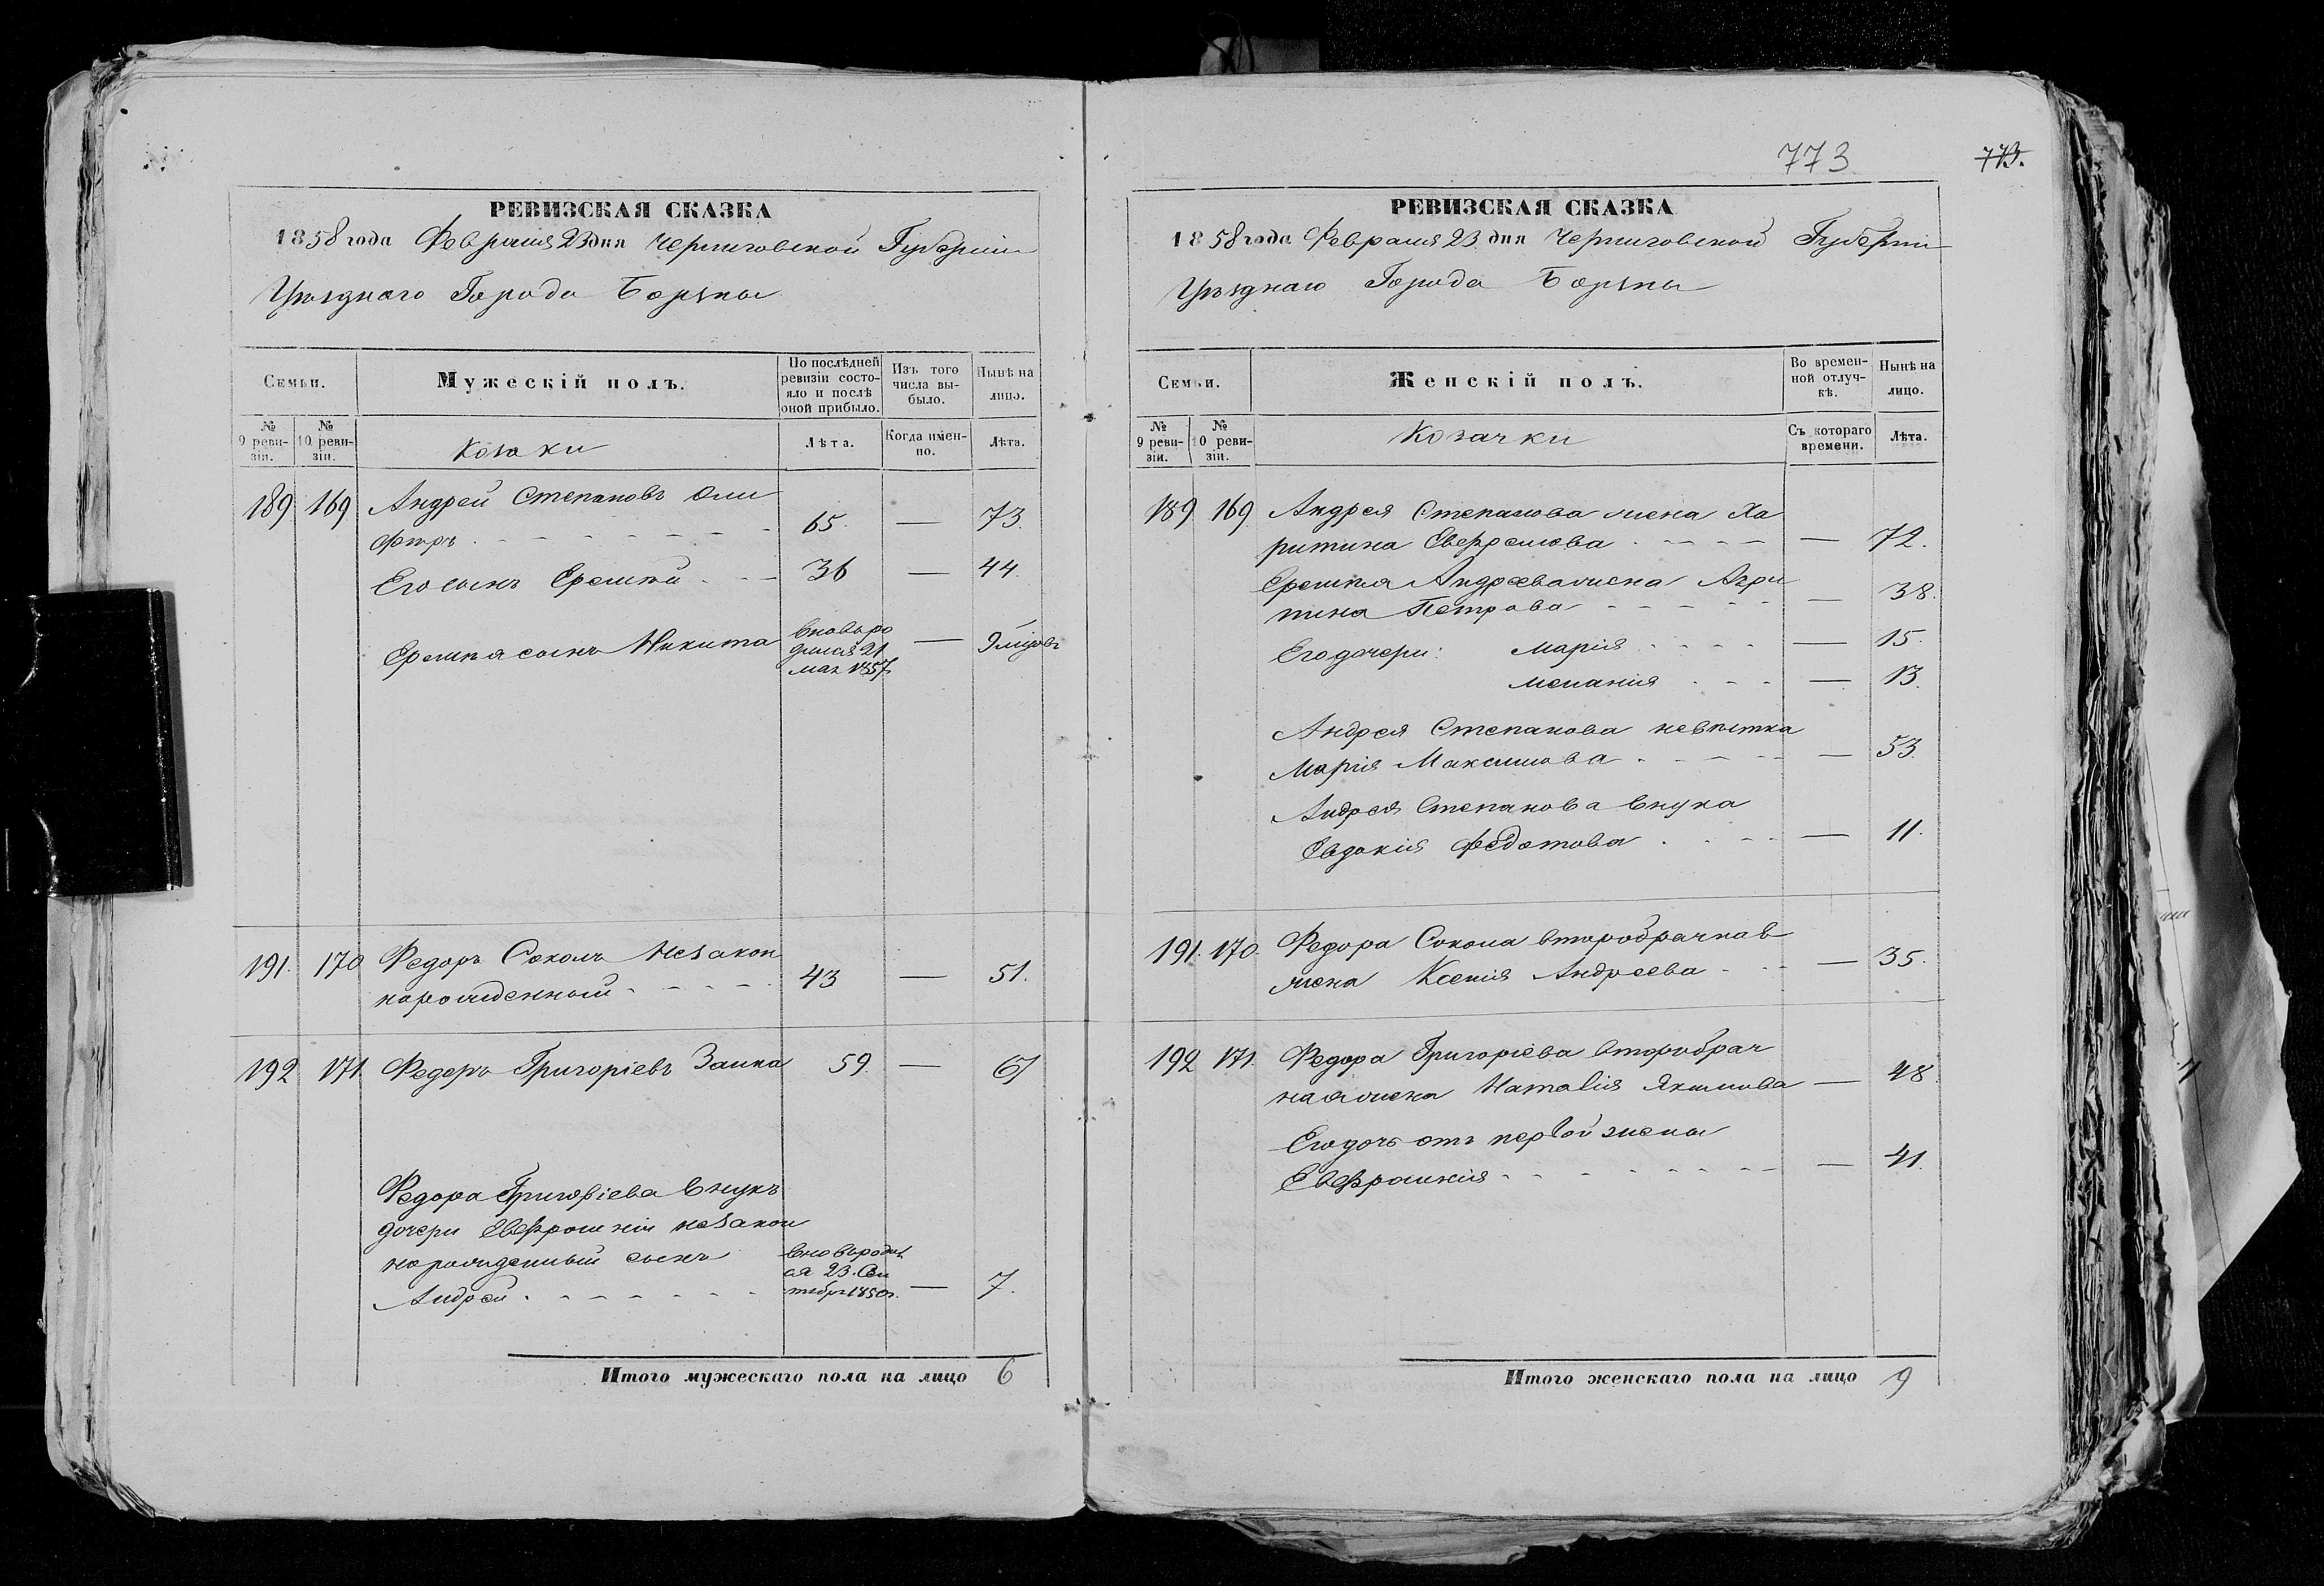 РЕВИЗСКАЯ СКАЗКА
1858 года Февраля 23 дня Черниговской Губерніи
Уѣзднаго Города Борзны
Семьи.
Мужескій полъ.
По послѣдней ревизіи состояло и послѣ оной прибыло.
Изъ того числа выбыло.
Нынѣ на лицо.
№ 9 ревизіи.
№ 10 ревизіи.
Козаки
Лѣта.
Когда именно.
Лѣта.
189 169 Андрей Степановъ Оли
феръ 65. — 73.
Его сынъ Еремѣй 36 — 44.
Еремѣя сынъ Никита
вновь ро
дился 21
мая 1857
— 9 мѣсяцовъ
191. 170 Федоръ Соколъ Незакон
норожденный 43 — 51.
192 171. Федоръ Григоріевъ Заика 59. — 67
Федора Григоріева внукъ
дочери Евфросиніи незакон
норожденный сынъ
Андрей
вновь родил
ся 23. Сен
тября 1850г.
— 7.
Итого мужескаго пола на лицо 6
773
773.
РЕВИЗСКАЯ СКАЗКА
1858 года Февраля 23 дня Черниговской Губерніи
Уѣзднаго Города Борзны
Семьи.
Женскій полъ.
Во временной отлучкѣ.
Нынѣ на лицо.
№ 9 ревизіи.
№ 10 ревизіи.
Козачки
Съ котораго времени.
Лѣта.
189 169. Андрея Степанова жена Ха
ритина — 72.
Еремѣя Андреева жена Агри
пина Петрова — 38.
Его дочери: Марія — 15.
Меланія — 13.
Андрея Степанова невѣстка
Марія Максимова — 53.
Андрея Степанова внука
Евдокія Федотова — 11.
191. 170. Федора Сокола второбрачная
жена Ксенія Андреева — 35.
192 171. Федора Григоріева второбрач
ная жена Наталія Якимова — 48.
Его дочь отъ первой жены
Евфросинія — 41.
Итого женскаго пола на лицо 9